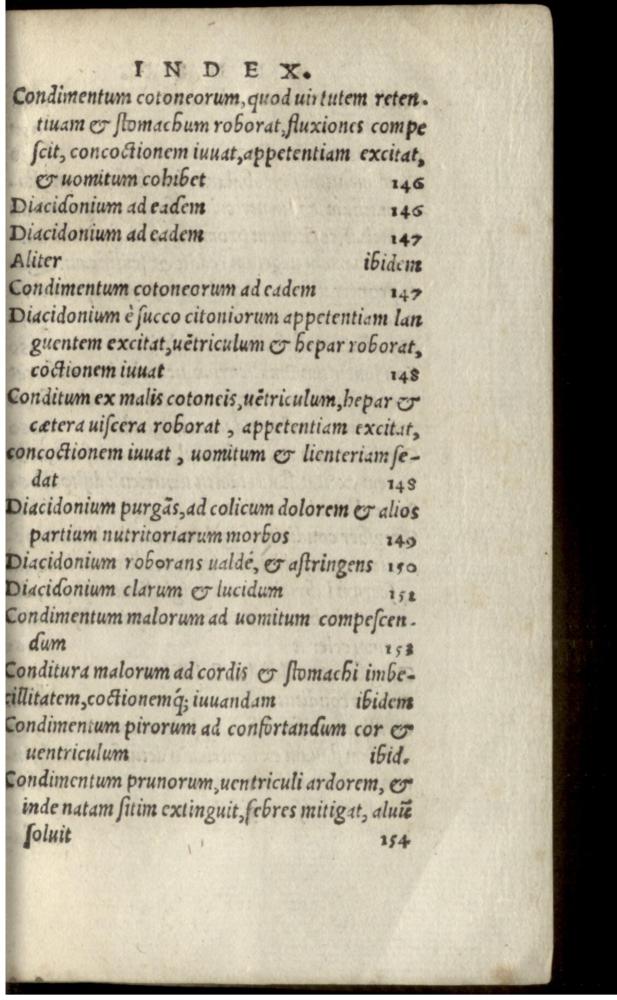 INDEX.
Condimentum cotoneorum, quod uirtutem reten-
tiuam & stomachum roborat, fluxiones compe
scit, concoctionem iuuat, appetentiam excitat,
& uomitum cohibet 146
Diacidonium ad eadem 146
Diacidonium ad eadem 147
Aliter ibidem
Condimentum cotoneorum ad eadem 147
Diacidonium è succo citoniorum appetentiam lan
guentem excitat, uētriculum & hepar roborat,
coctionem iuuat 148
Conditum ex malis cotoneis, uētriculum, hepar &
cætera uiscera roborat, appetentiam excitat,
concoctionem iuuat, uomitum & lienteriam se-
dat 148
Diacidonium purgãs, ad colicum dolorem & alios
partium nutritoriarum morbos 149
Diacidonium roborans ualdé, & astringens 150
Diacidonium clarum & lucidum 151
Condimentum malorum ad uomitum compescen-
dum 153
Conditura malorum ad cordis & stomachi imbe-
cillitatem, coctionemq́; iuuandam ibidem
Condimentum pirorum ad confortandum cor &
uentriculum ibid.
Condimentum prunorum, uentriculi ardorem, &
inde natam sitim extinguit, febres mitigat, aluū
soluit 154